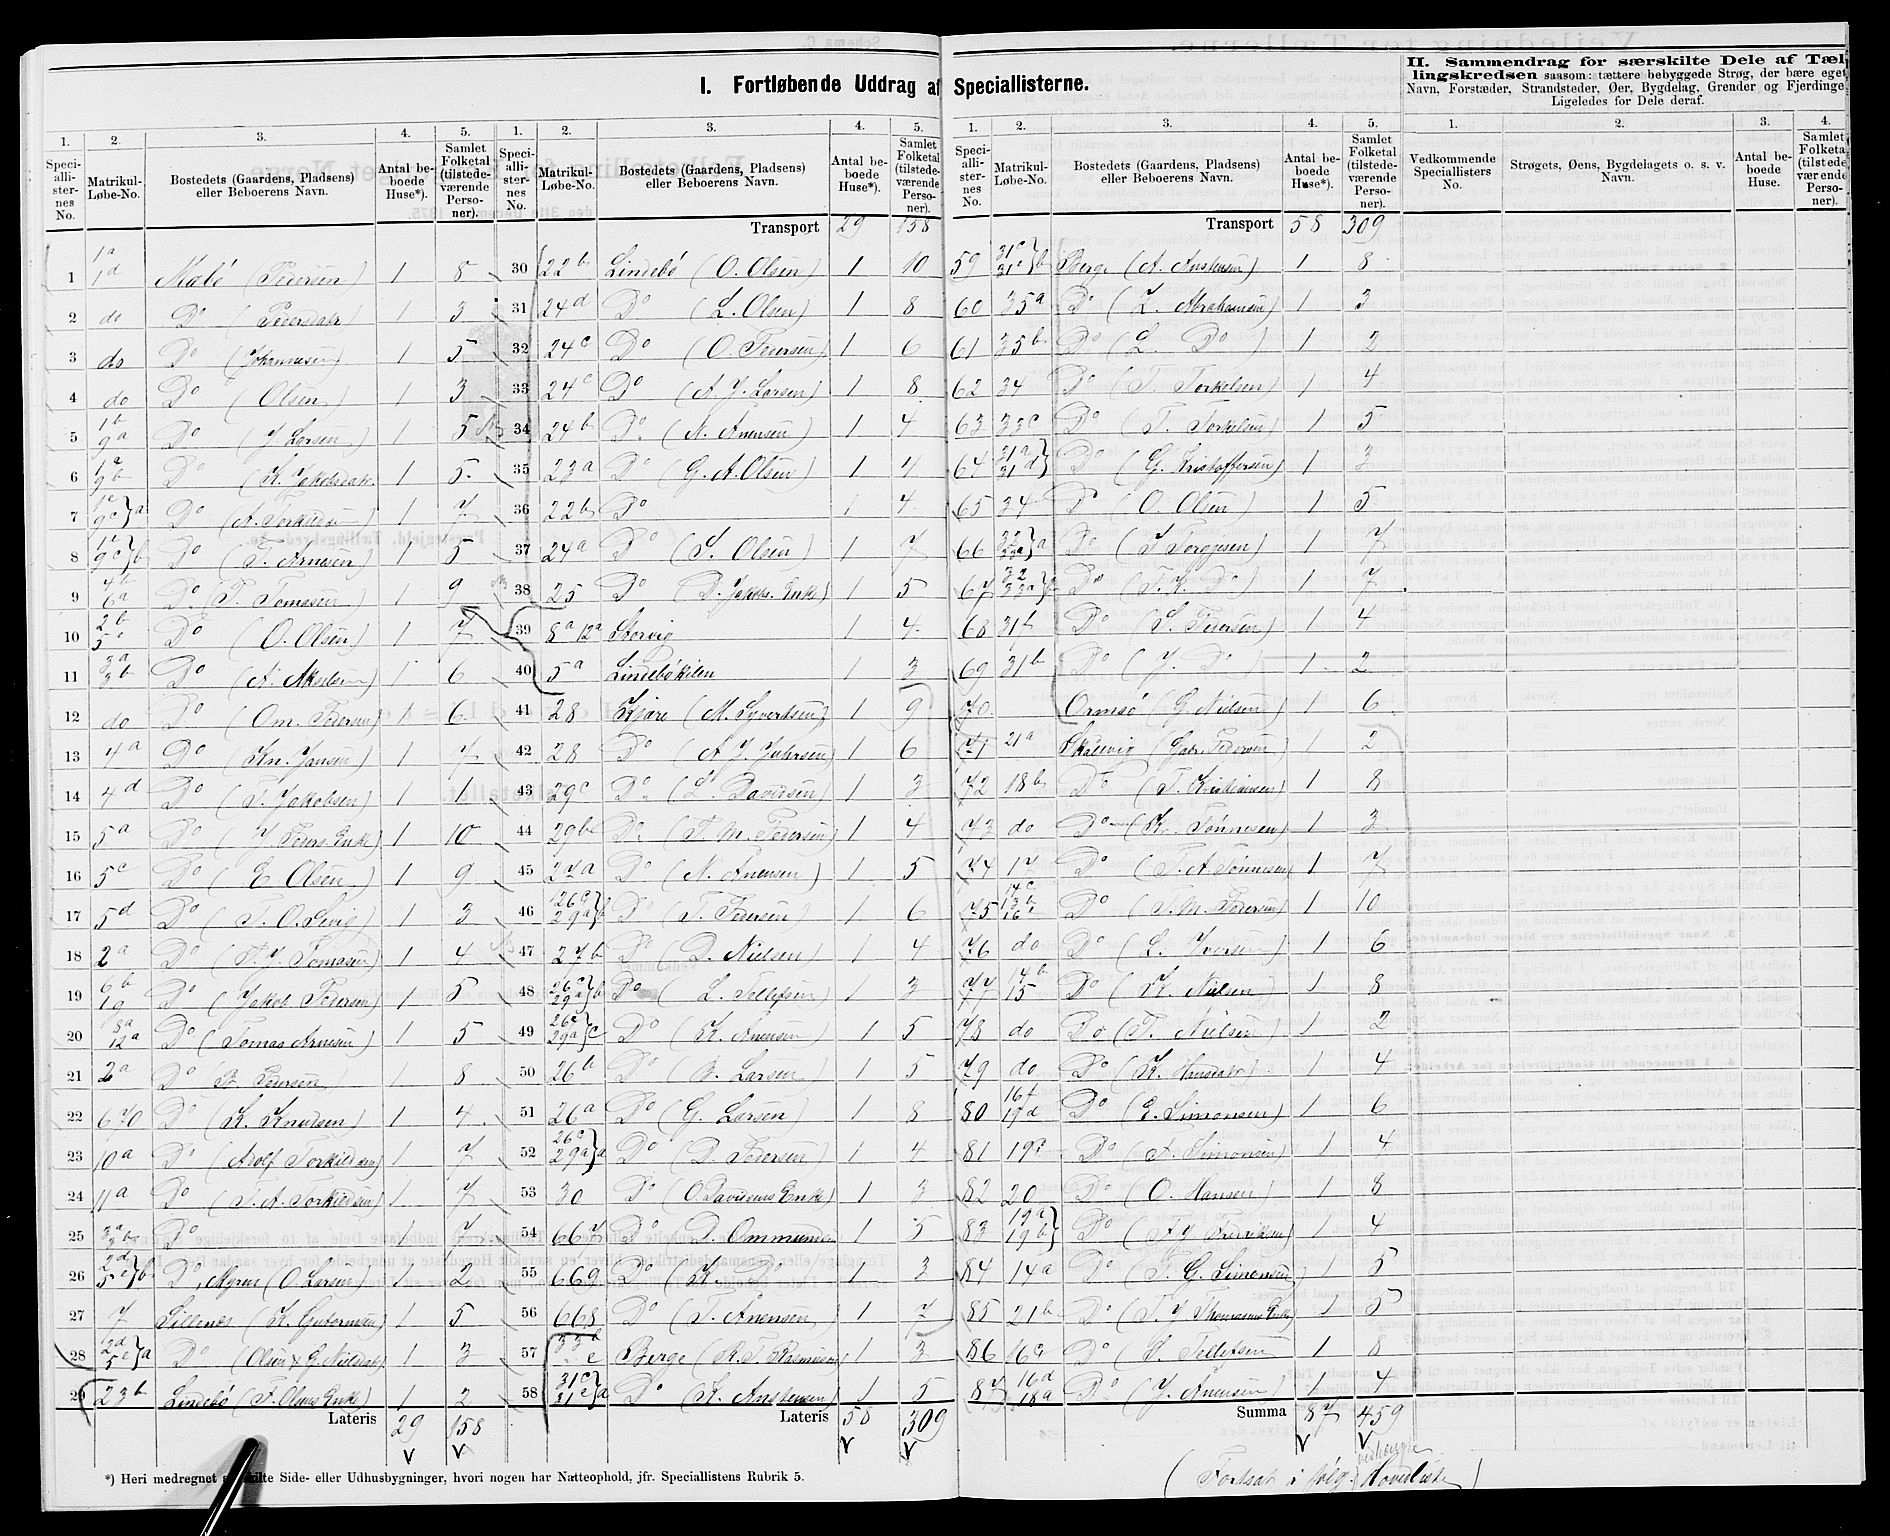 I. Fortløbende Uddrag af Speciallisterne.
II. Sammendrag for særskilte Dele af Tæl-
lingskredsen saasom: tættere bebyggede Strøg, der bære eget
Navn, Forstæder, Strandsteder, Øer, Bygdelag, Grender og Fjerdinge.
Ligeledes for Dele deraf.
1. 2. 3. 4. 5.
Speci-alli-ster-nes No. Matrikul-Løbe-No. Bostedets (Gaardens, Pladsens) eller Beboerens Navn. Antal be-boede Huse*). Samlet Folketal (tilstede-værende Perso-ner).
1 1a 1d Malø (Pedersen) 1 8
2 do Do (Pedersdatr) 1 3
3 do Do (Johannesen) 1 5
4 do Do (Olsen) 1 3
5 1b 9a Do (J Larsen) 1 5
6 9b Do (K. Jakobsdatr 1 5
7 9c}a Do (A. Torkildsen) 1 7
8 9c}b Do (T. Arnesen) 1 5
9 4b 6a Do (T. Tomasen) 1 9
10 2b 5c Do (O. Olsen) 1 7
11 3a 3b Do (A. Akselsen) 1 6
12 do Do (Om. Pedersen) 1 6
13 4a Do (Kn. Jansen) 1 7
14 4d Do (T. Jakobsen) 1 1
15 5a Do (J Peders. Enke) 1 10
16 5c Do (E Olsen) 1 9
17 5d Do (T. O. Sevig) 1 3
18 2a Do (P. J. Tomasen) 1 4
19 6b 19 Do (Jakob Pedersen) 1 5
20 8a 12a Do (Tomas Arnesen) 1 5
21 2a Do (B. Pedersen) 1 8
22 670 Do (K. Knutsen) 1 4
23 10a Do (Adolf Torkildsen) 1 7
24 11a Do (T. A. Torkildsen) 1 7
25 3a Do 1 7
26 2d 5e}b Do, Myren (O. Larsen) 1 2
27 7 Sillenes (K. Gutormsen) 1 5
28 2d 5e}a Do (Olsen & G. Nielsdatr) 1 3
29 23b Lindebø (T. Olsens Enke) 1 2
Lateris 29 158
1. 2. 3. 4. 5.
Speci-alli-ster-nes No. Matrikul-Løbe-No. Bostedets (Gaardens, Pladsens) eller Beboerens Navn. Antal be-boede Huse*). Samlet Folketal (tilstede-værende Perso-ner).
Transport 29 158
30 22b Lindebø (O. Olsen) 1 10
31 24d Do (L. Olsen) 1 8
32 24c Do (O. Pedersen) 1 6
33 24c Do (A. J. Larsen) 1 8
34 24b Do (N. Anensen) 1 4
35 23a Do (G. A. Olsen) 1 4
36 22b Do 1 4
37 24a Do (S. Olsen) 1 7
38 25 Do (D. Jakobs. Enke) 1 5
39 8a 12a Storvig 1 4
40 5a Lindebøkilen 1 3
41 28 Kjøre (M. Syvertsen) 1 9
42 28 Do (A J. Jakobsen) 1 6
43 29c Do (L. Davidsen) 1 3
44 29b Do (T. M. Pedersen) 1 4
45 27a Do (N. Anensen) 1 5
46 26c 29a}b Do (T. Pedersen) 1 6
47 27b Do (D. Nielsen) 1 4
48 26c 29a}b Do (L. Tellefsen) 1 3
49 26c 29a}c Do (K. Anensen) 1 5
50 26b Do (B. Larsen) 1 5
51 26a Do (G. Larsen) 1 8
52 26c 29a}a Do (D. Pedersen) 1 4
53 30 Do (O Davidsens Enke) 1 3
54 667 Do (D. Ommunds 1 5
55 669 Do (K. Do) 1 3
56 668 Do (T. Anensen) 1 7
57 33b e Berge (K. T. Rasmusen) 1 3
58 31c 31e}a Do (K. Anstensen) 1 5
Lateris 58 309
1. 2. 3. 4. 5.
Speci-alli-ster-nes No. Matrikul-Løbe-No. Bostedets (Gaardens, Pladsens) eller Beboerens Navn. Antal be-boede Huse*). Samlet Folketal (tilstede-værende Perso-ner).
Transport 58 309
59 31c 31e}b Berge (A. Anstensen) 1 8
60 35a Do (L. Abrahamsen) 1 3
61 35b Do (L. Do) 1 2
62 34 Do (T. Torkelsen) 1 4
63 33c Do (T. Torkelsen) 1 5
64 31a 31d} Do (G. Kristoffersen) 1 3
65 34 Do (O. Olsen) 1 5
66 32 33a}a Do (T Torgjusen) 1 7
67 32 33a} Do (T. K. Do) 1 7
68 31b Do (S. Pedersen) 1 4
69 31b Do (J. Do) 1 2
70 Ormsø (G. Nielsen) 1 6
71 21a Skalevig (Gabr. Pedersen) 1 2
72 18b Do (T. Kristiansen) 1 8
73 do Do (K. Tønnesen) 1 3
74 17 Do (T. A Tønnesen) 1 7
75 14c 13b 16 Do (T. M. Pedersen) 1 10
76 do Do (L. Iversen) 1 6
77 14b 15 Do (K. Nielsen) 1 8
78 do Do (T. Nielsen) 1 2
79 do Do (K. Hansdatr) 1 4
80 16f 19d Do (E. Simonsen) 1 6
81 19c Do (A. Simonsen) 1 4
82 20 Do (O. Hansen) 1 8
83 19a 19b} Do (A J Fredriksen) 1 4
84 14a Do (T. G. Simonsen) 1 5
85 21b Do (T. J Thomasens Enke) 1 5
86 16c Do (H. Tellefsen 1 8
87 16d 18a Do (J. Anensen) 1 4
Summa 87 459
(Fortsat i følg. vedhengte Hovedliste)
1. 2. 3. 4.
Vedkommende Speciallisters No. Strøgets, Øens, Bygdelagets o. s. v. Navn. Antal be-boede Huse. Samlet Folketal (tilstede-værende Perso-ner).
*) Heri medregnet særskilte Side- eller Udhusbygninger, hvori nogen har Natteophold, jfr. Speciallistens Rubrik 5.